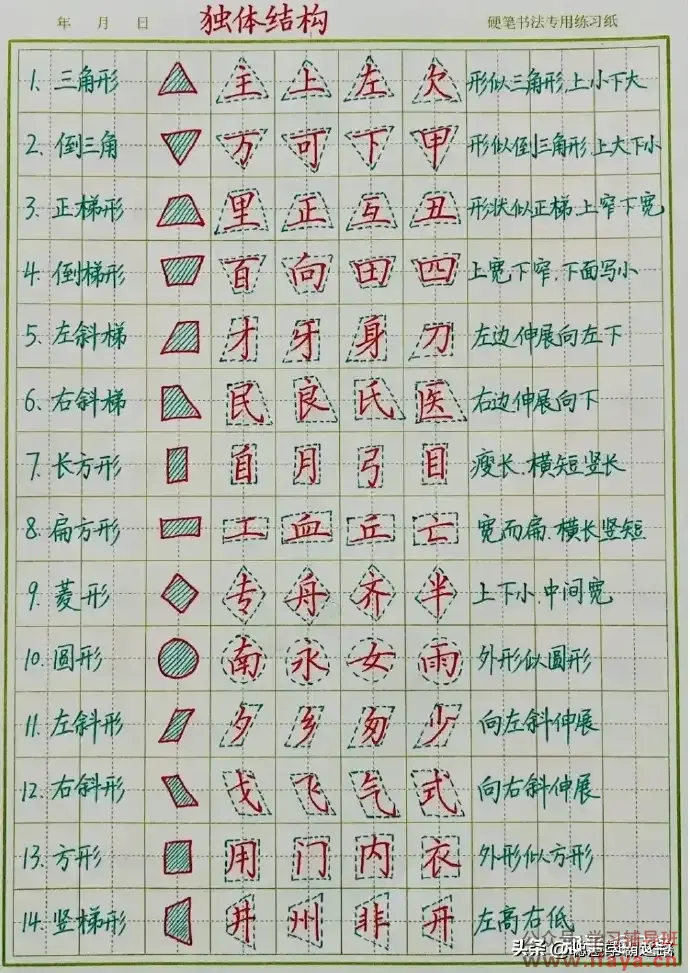 年 月 日 独体结构 硬笔书法专用练习纸
1. 三角形 主 上 左 欠 形似三角形,上小下大
2. 倒三角 万 可 下 甲 形似倒三角形,上大下小
3. 正梯形 里 正 互 丑 形状似正梯.上窄下宽
4. 倒梯形 百 向 田 四 上宽下窄.下面写小
5. 左斜梯 才 牙 身 刀 左边伸展向左下
6. 右斜梯 民 良 氏 医 右边伸展向下
7. 长方形 自 月 弓 目 瘦长.横短竖长
8. 扁方形 工 血 丘 亡 宽而扁.横长竖短
9. 菱形 专 舟 齐 半 上下小.中间宽
10. 圆形 南 永 女 雨 外形似圆形
11. 左斜形 夕 乡 匆 少 向左斜伸展
12. 右斜形 戈 飞 气 式 向右斜伸展
13. 方形 用 门 内 衣 外形似方形
14. 竖梯形 井 州 非 开 左高右低
头条 @
www.naya.cn